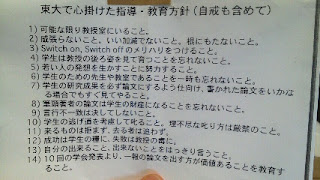 東大で心掛けた指導・教育方針（自戒も含めて）
1) 可能な限り教授室にいること。
2) 威張らないこと。いい加減でないこと。根にもたないこと。
3) Switch on, Switch off のメリハリをつけること。
4) 学生は教授の後ろ姿を見て育つことを忘れないこと。
5) 若い人の発想を生かすことに努力すること。
6) 学生のための先生や教室であることを一時も忘れないこと。
7) 学生の研究成果を必ず論文にするよう仕向け、書かれた論文をいかなる場合でもすぐ見てやること。
8) 筆頭著者の論文は学生の財産になることを忘れないこと。
9) 言行不一致は決してしないこと。
10) 学生の逃げ道を考慮して叱ること。理不尽な叱り方は厳禁のこと。
11) 来るものは拒まず、去る者は追わず。
12) 成功は学生の糧に、失敗は教授の責に。
13) 自分の出来ること、出来ないことをはっきり言うこと。
14) 10回の学会発表より、一報の論文を出す方が価値あることを教育すること。